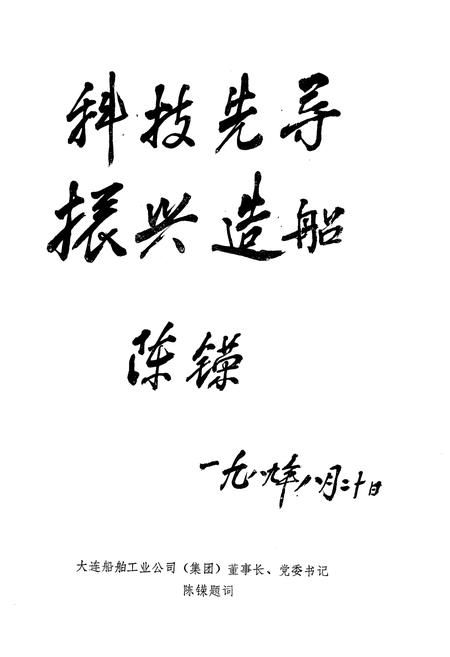 科技先导
振兴造船
陈镁
一九八九年八月二十日
大连船舶工业公司（集团）董事长、党委书记
陈镁题词